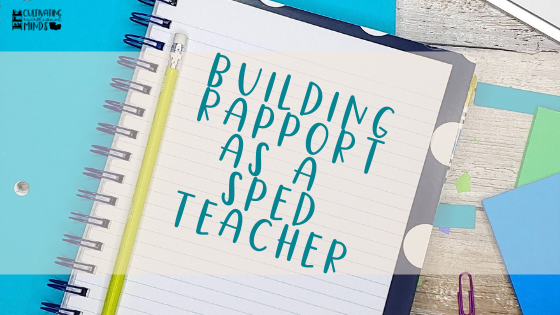 CULTIVATING
exceptional
MINDS
BUILDING
RAPPORT
AS A
SPED
TEACHER